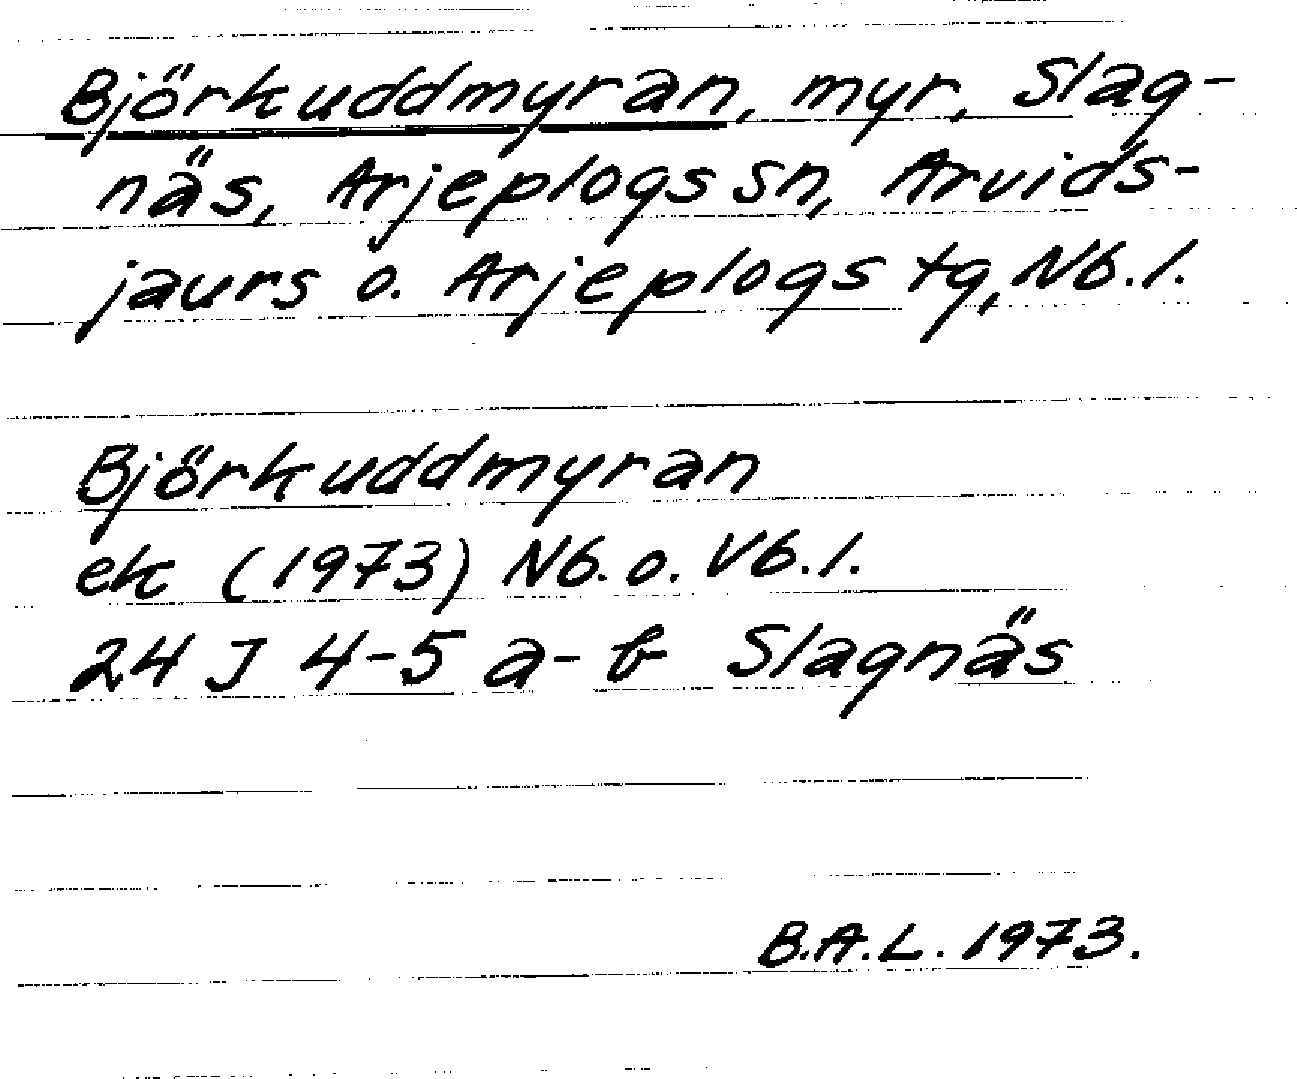 Björkuddmyran, myr, Slag-
näs, Arjeplogs sn, Arvids-
jaurs o. Arjeplogs tg, Nb.l.
Björkuddmyran
ek (1973) Nb. o. Vb.l.
24 J 4-5 a-b Slagnäs
B.A.L. 1973.